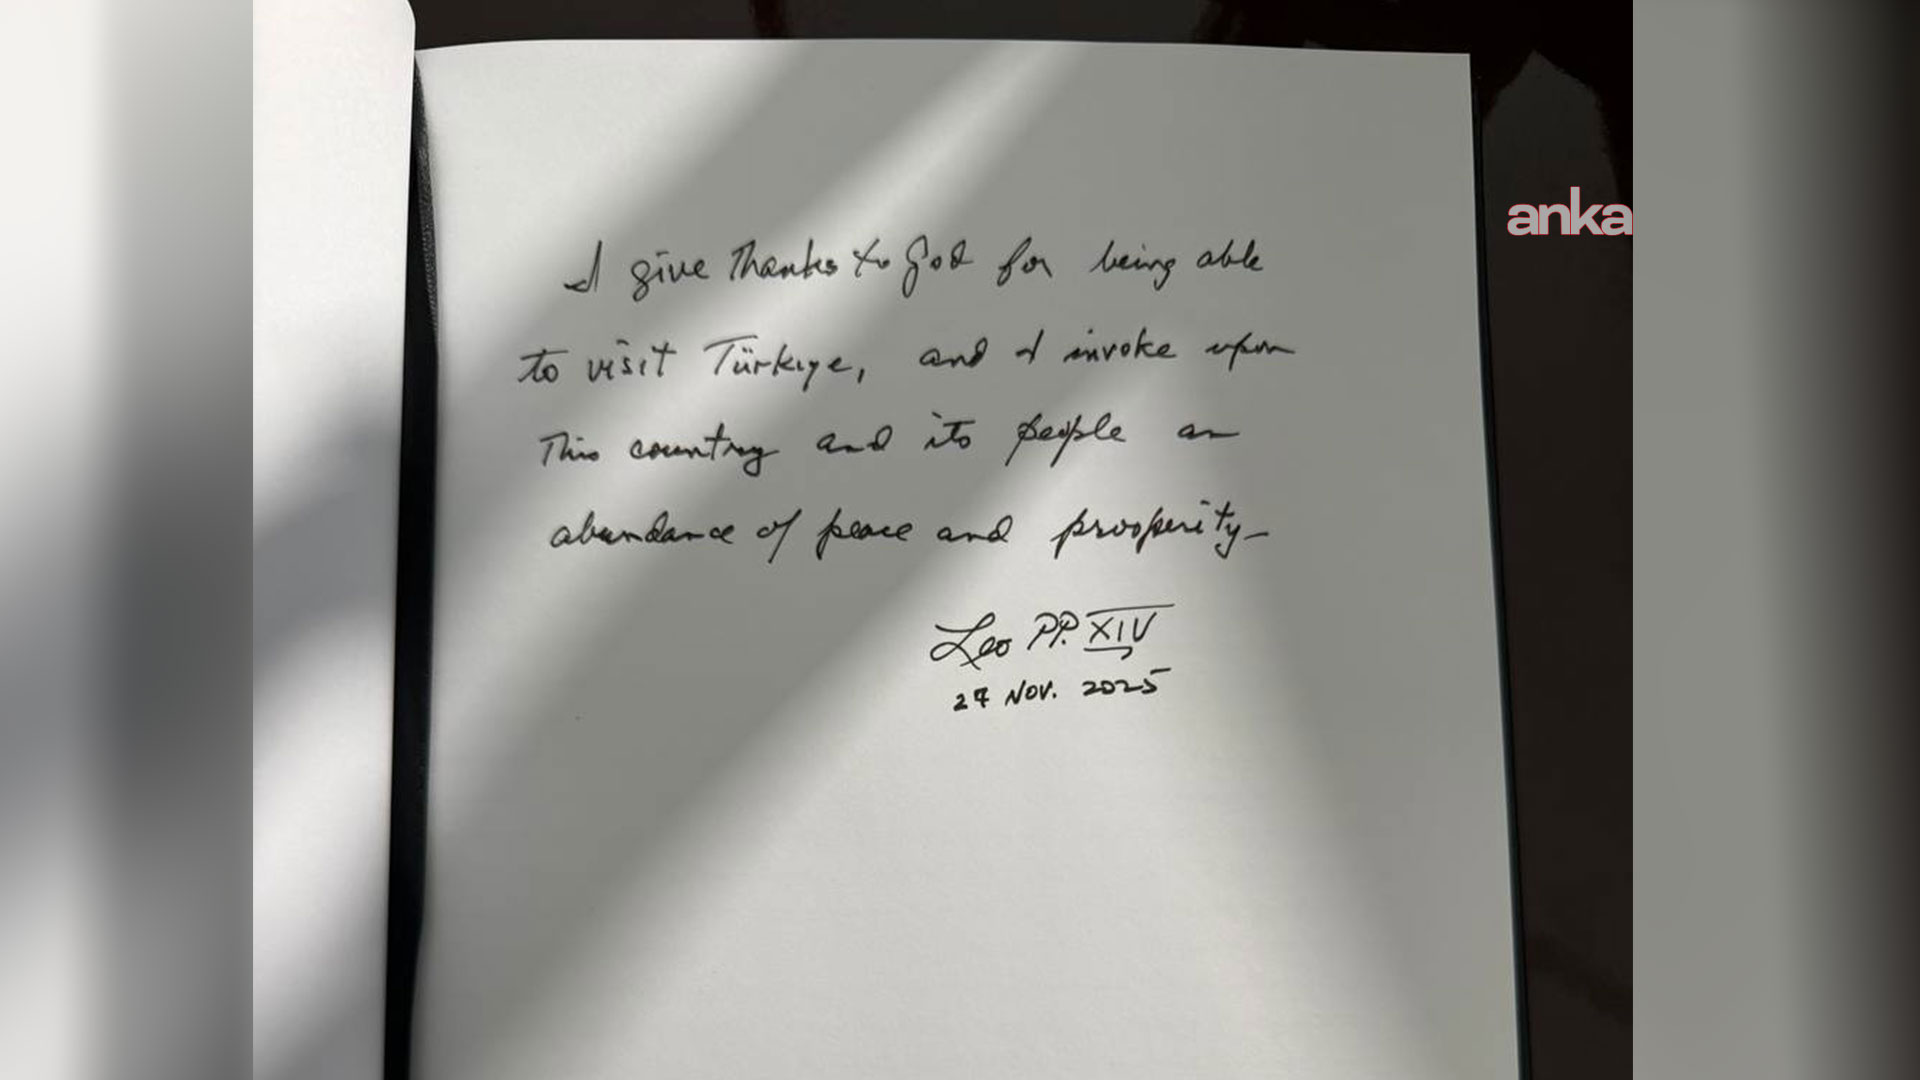 I give thanks to God for being able
to visit Türkiye, and I invoke upon
this country and its people an
abundance of peace and prosperity_
Leo PP. XIV
27 Nov. 2025
anka